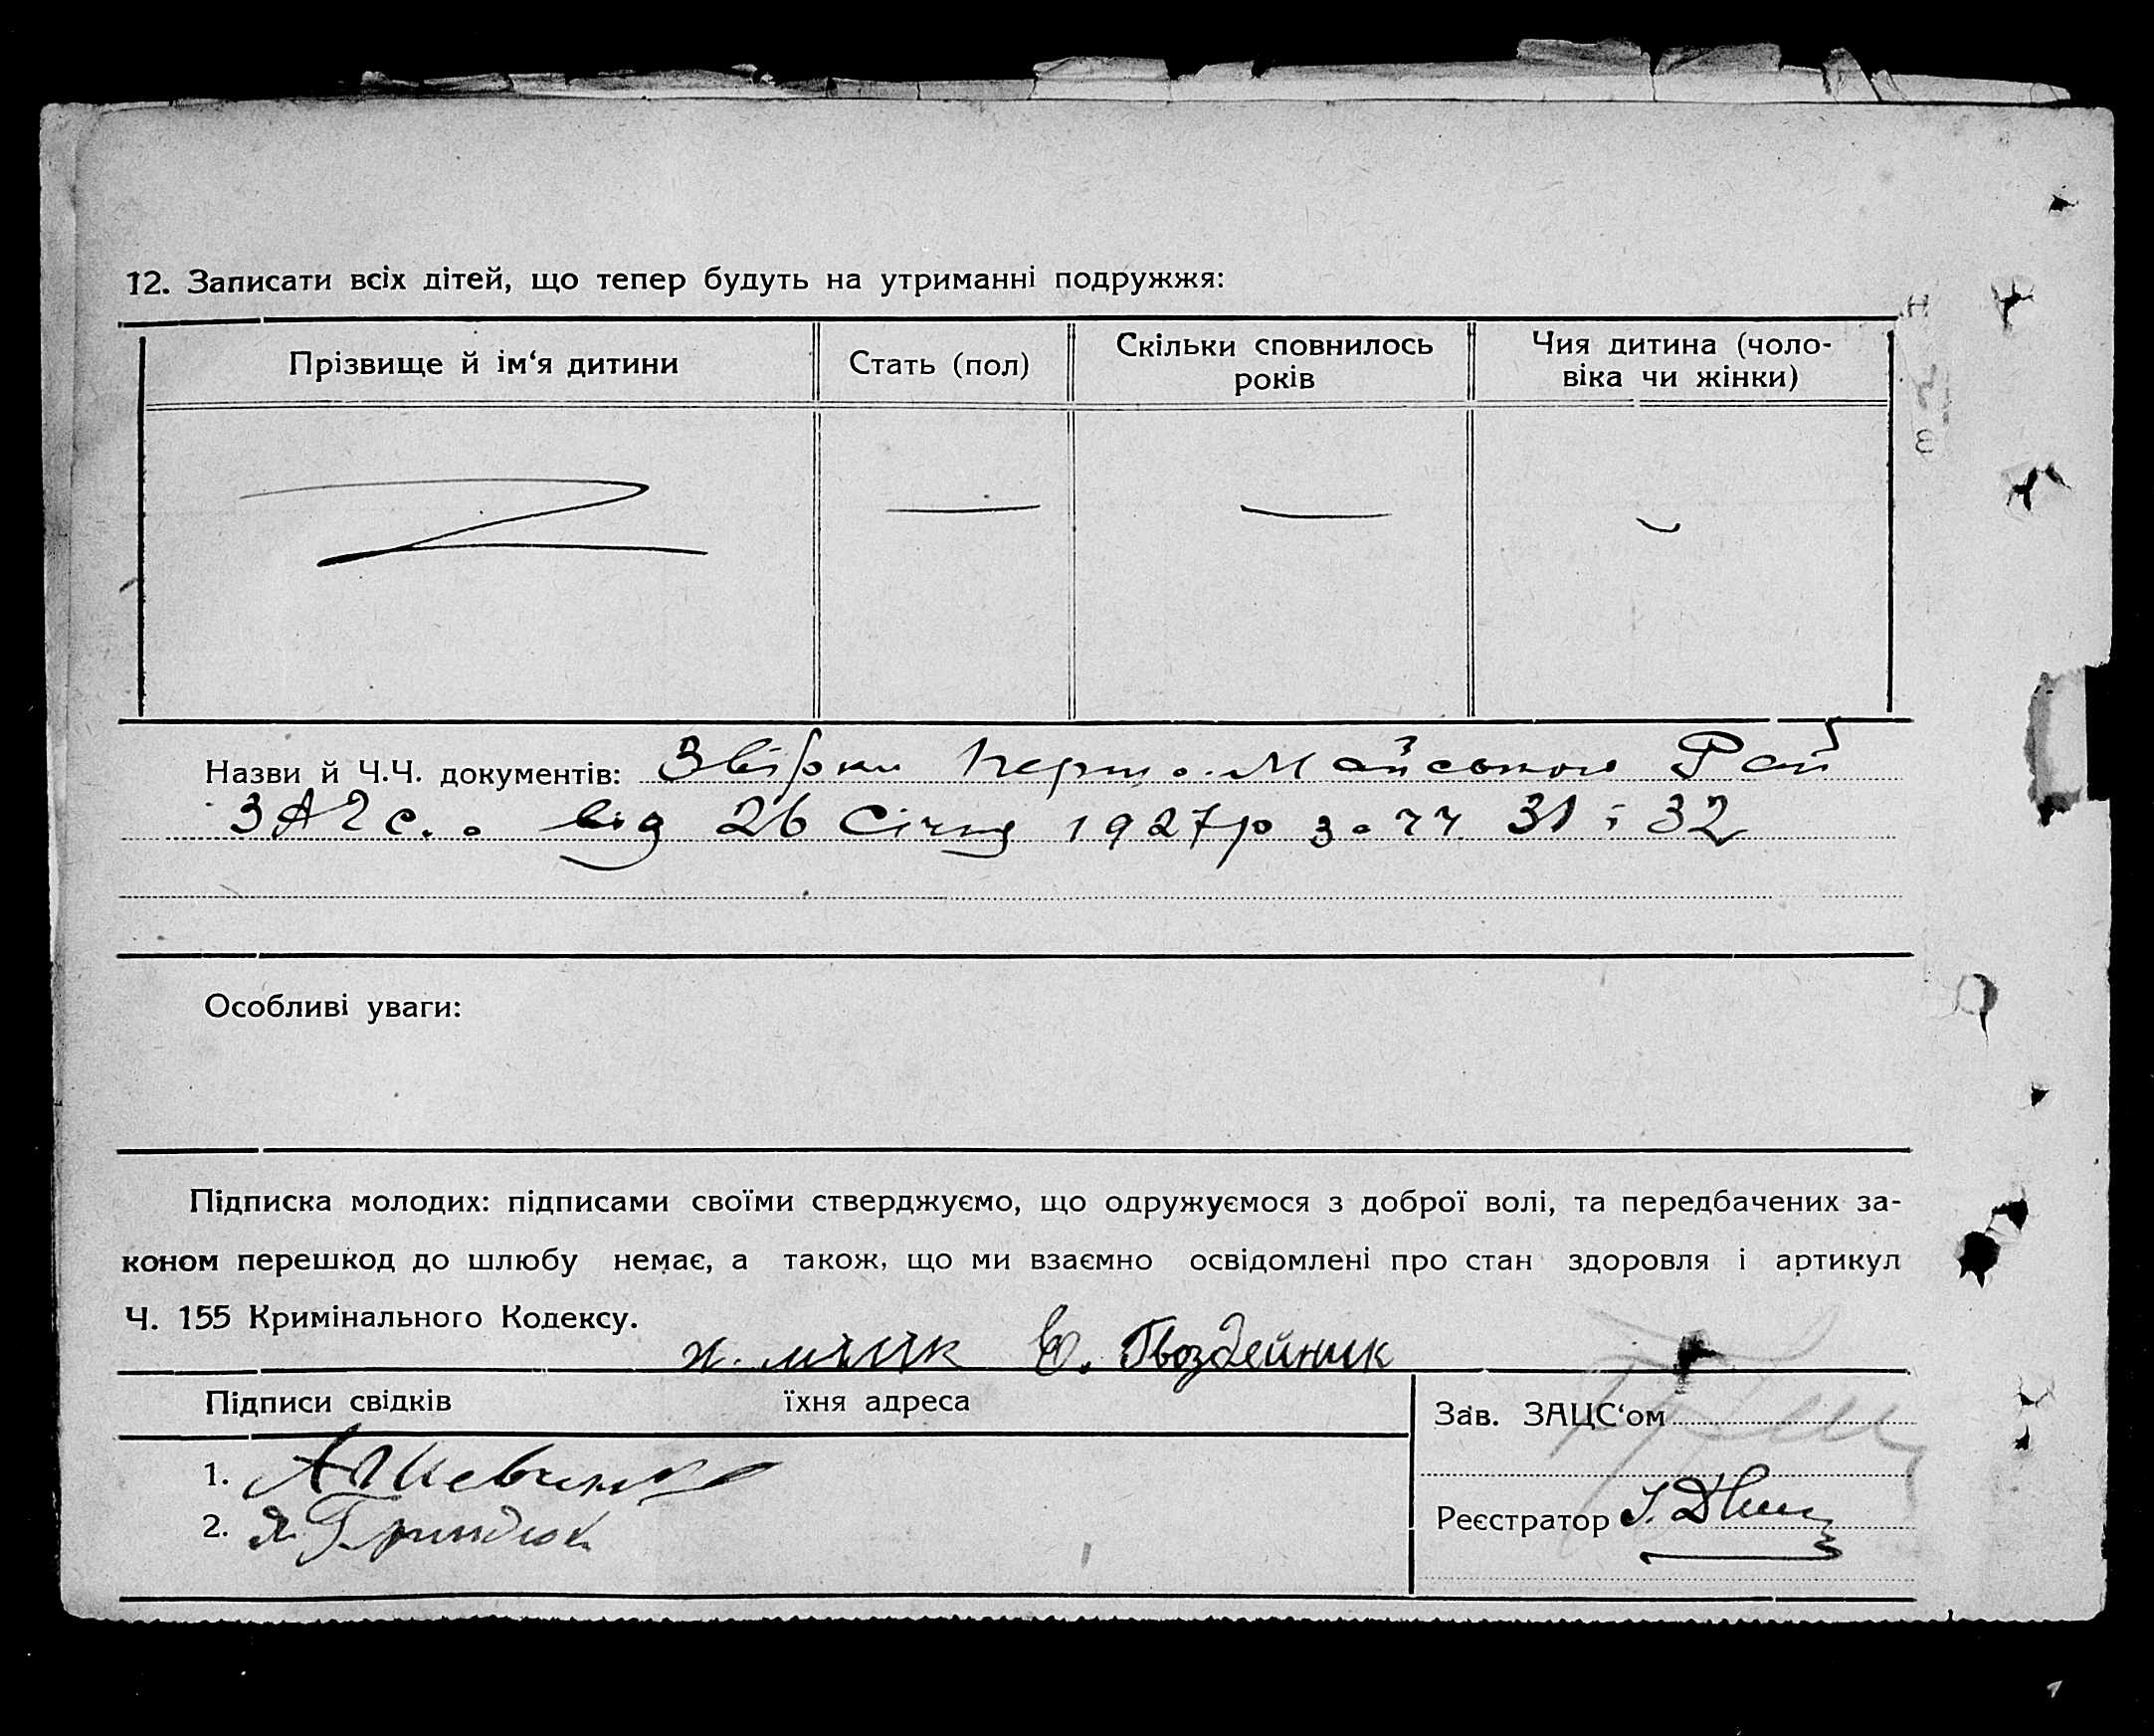 12. Записати всіх дітей, що тепер будуть на утриманні подружжя:
Прізвище й ім‘я дитини
Стать (пол)
Скільки сповнилось
років
Чия дитина (чоло-
віка чи жінки)
Назви й Ч.Ч. документів: Звірки Рай
від 26 Січня 1927р за чч 31 і 32
Особливі уваги:
Підписка молодих: підписами своїми стверджуємо, що одружуємося з доброї волі, та передбачених за-
коном перешкод до шлюбу немає, а також, що ми взаємно освідомлені про стан здоровля і артикул
Ч. 155 Кримінального Кодексу.
Гвоздейник
Підписи свідків їхня адреса
Зав. ЗАЦС‘ом
1.
2.
Реєстратор